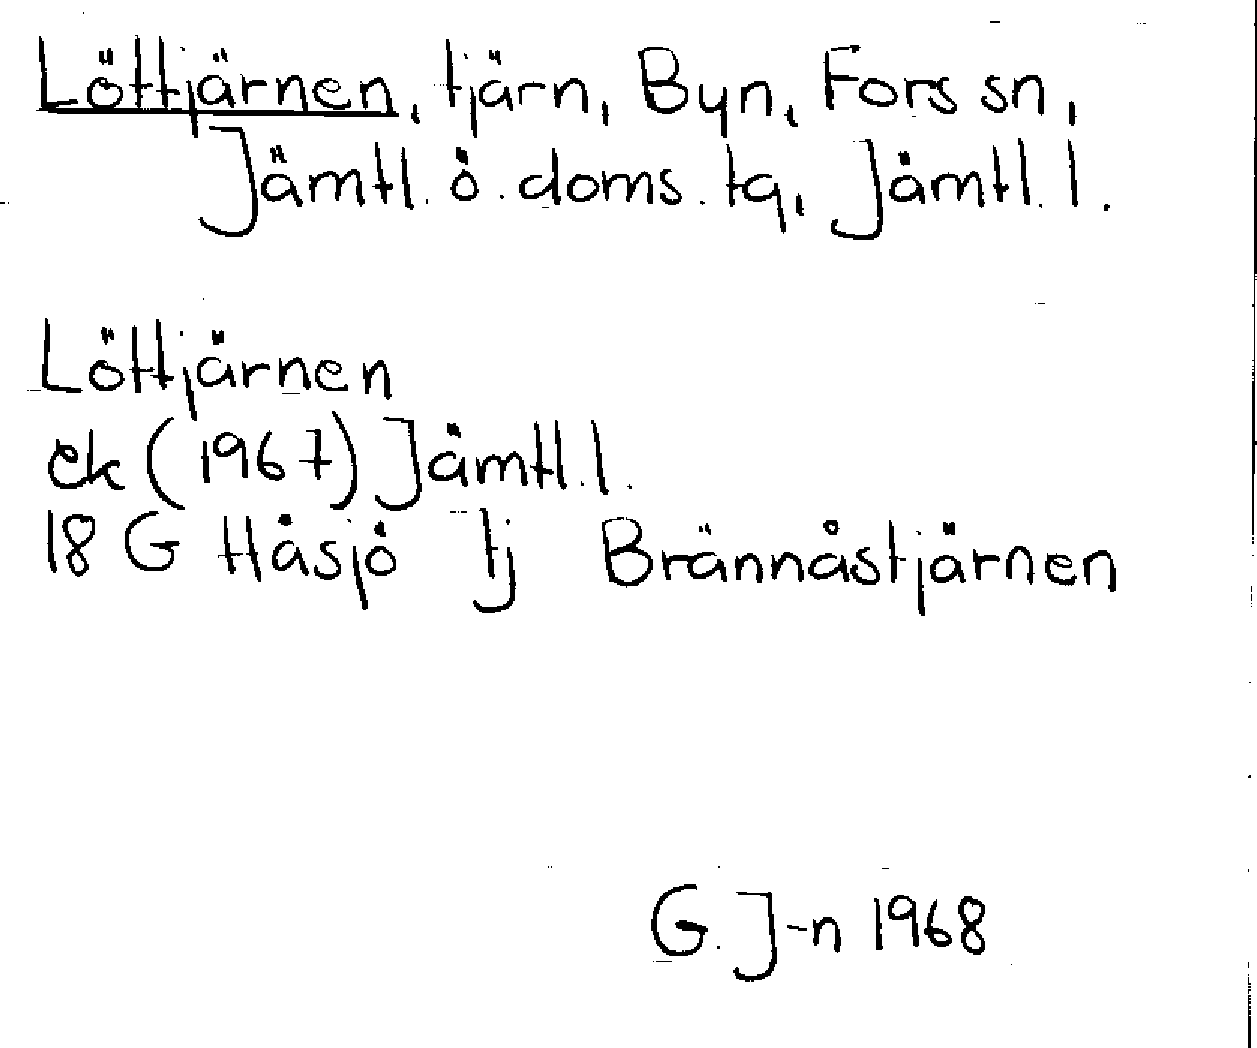 Löttjärnen, tjärn, Byn, Fors sn,
Jämtl. ö. doms. tg, Jämtl. l.
Löttjärnen
ek (1967) Jämtl. l.
18 G Håsjö tj Brännåstjärnen
G. J-n 1968